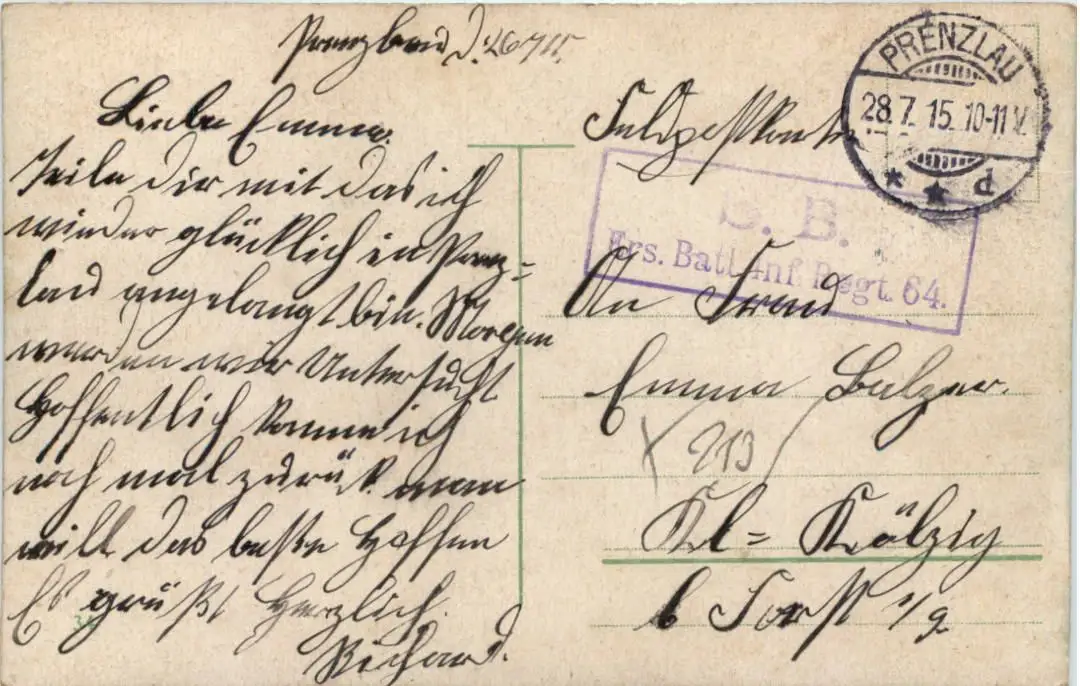 Prenzlau d. 26 7 15.
Liebe Emma.
Teile dir mit das ich
wieder glücklich in Prenz=
lau angelangt bin. Morgen
werden wir Untersucht
Hoffentlich komme ich
noch mal zurück man
will das beste Hoffen
Es grüßt Herzlich.
Richard.
34
Feldpostkarte
PRENZLAU
28.7.15.10-11V.
* * d
S. B.
Ers. Batl. Inf. Regt. 64.
An Frau
Emma Balzer.
X 213
Kl= Kölzig
b Forst i/L